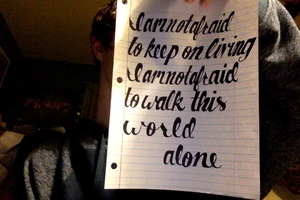 I am not afraid
to keep on living
I am not afraid
to walk this
world
alone